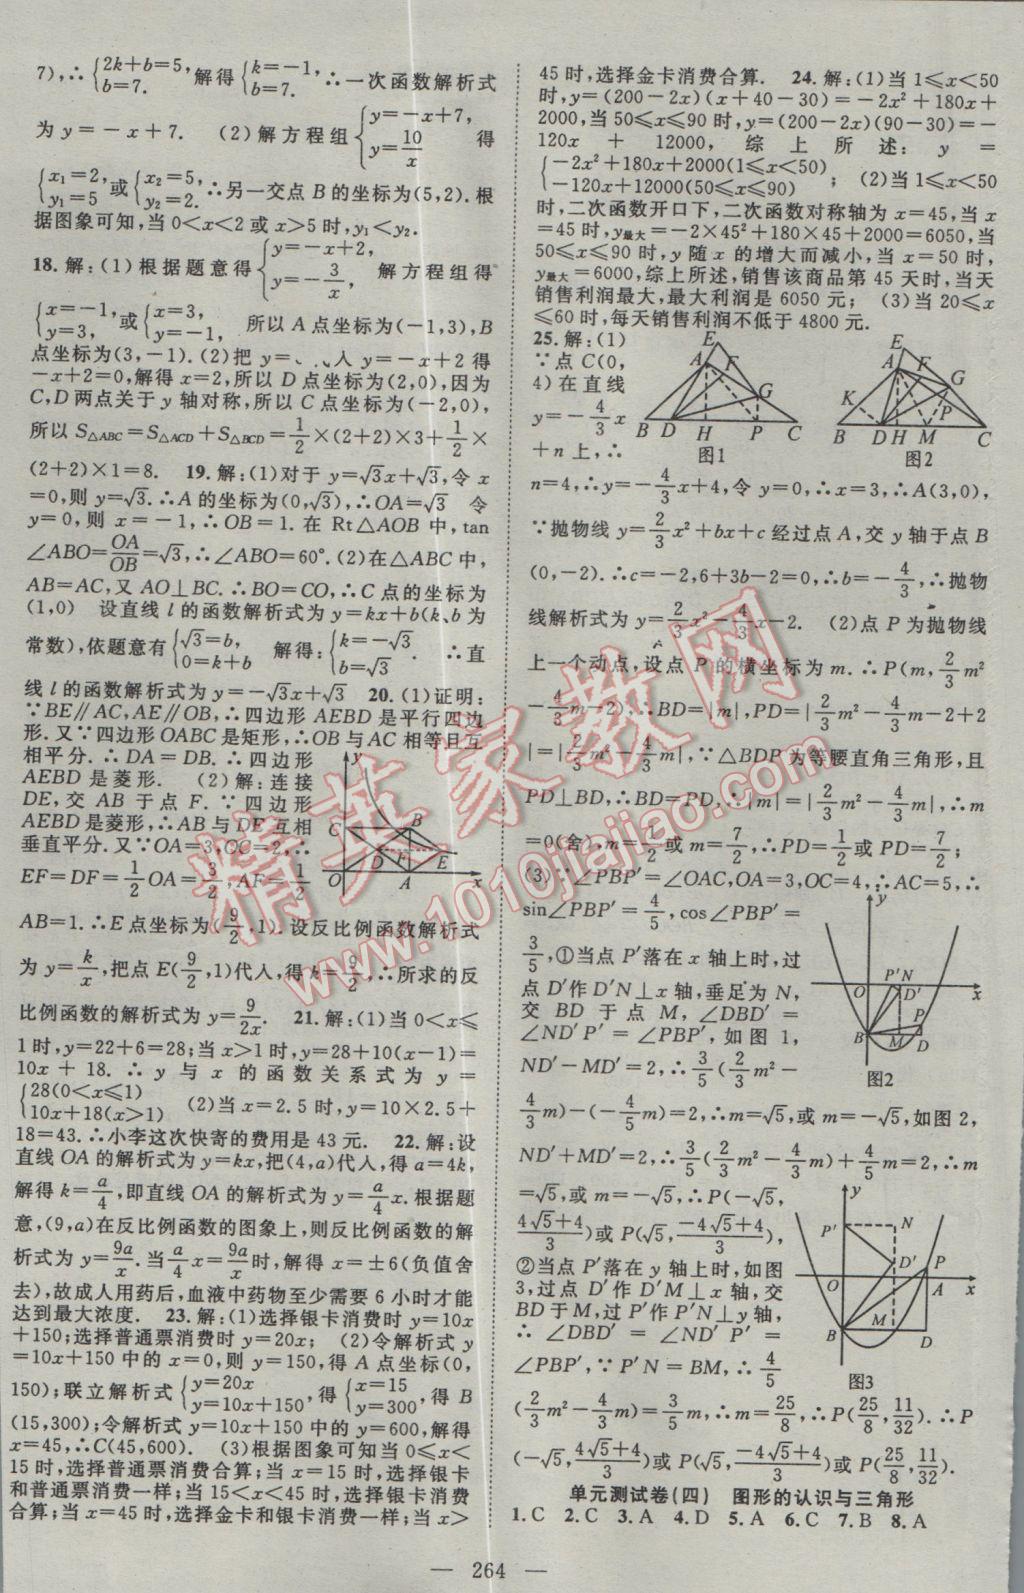 7),∴{2k+b=5, b=7. 解得{k=-1, b=7. ∴一次函数解析式
为 y=-x+7. (2)解方程组{y=-x+7, y=10/x 得
{x₁=2, y₁=5 或{x₂=5, y₂=2. ∴另一交点 B 的坐标为(5,2).根
据图象可知,当 0<x<2 或 x>5 时,y₁<y₂.
18.解:(1)根据题意得{y=-x+2, y=-3/x, 解方程组得
{x=-1, y=3, 或{x=3, y=-1, 所以 A 点坐标为(-1,3),B
点坐标为(3,-1).(2)把 y= 入 y=-x+2 得
-x+2=0,解得 x=2,所以 D 点坐标为(2,0),因为
C,D 两点关于 y 轴对称,所以 C 点坐标为(-2,0),
所以 S△ABC=S△ACD+S△BCD=1/2×(2+2)×3+1/2×
(2+2)×1=8. 19.解:(1)对于 y=√3x+√3,令 x
=0,则 y=√3.∴A 的坐标为(0,√3),∴OA=√3 令
y=0,则 x=-1,∴OB=1.在 Rt△AOB 中,tan
∠ABO=OA/OB=√3,∴∠ABO=60°.(2)在△ABC 中,
AB=AC,又 AO⊥BC.∴BO=CO,∴C 点的坐标为
(1,0) 设直线 l 的函数解析式为 y=kx+b(k、b 为
常数),依题意有{√3=b, 0=k+b 解得:{k=-√3 b=√3 . ∴直
线 l 的函数解析式为 y=-√3x+√3 20.(1)证明:
∵BE∥AC,AE∥OB,∴四边形 AEBD 是平行四边
形.又∵四边形 OABC 是矩形,∴OB 与 AC 相等且互
相平分.∴DA=DB.∴四边形
AEBD 是菱形. (2)解:连接
DE,交 AB 于点 F.∵四边形
AEBD 是菱形,∴AB 与 DE 互相
垂直平分.又∵OA=3,OC=2,∴
EF=DF=1/2OA=3/2,AF=1/2
AB=1.∴E 点坐标为(9/2,1).设反比例函数解析式
为 y=k/x,把点 E(9/2,1)代人,得 k=9/2,∴所求的反
比例函数的解析式为 y=9/2x. 21.解:(1)当 0<x≤
1 时,y=22+6=28;当 x>1 时,y=28+10(x-1)=
10x+18.∴y 与 x 的函数关系式为 y=
{28(0<x≤1) 10x+18(x>1) (2)当 x=2.5 时,y=10×2.5+
18=43.∴小李这次快寄的费用是 43 元. 22.解:设
直线 OA 的解析式为 y=kx,把(4,a)代人,得 a=4k,
解得 k=a/4,即直线 OA 的解析式为 y=a/4x.根据题
意,(9,a)在反比例函数的图象上,则反比例函数的解
析式为 y=9a/x.当a/4x=9a/x时,解得 x=±6(负值舍
去),故成人用药后,血液中药物至少需要 6 小时才能
达到最大浓度. 23.解:(1)选择银卡消费时 y=10x
+150;选择普通票消费时 y=20x; (2)令解析式 y
=10x+150 中的 x=0,则 y=150,得 A 点坐标(0,
150);联立解析式{y=20x y=10x+150,得{x=15 y=300,得 B
(15,300);令解析式 y=10x+150 中的 y=600,解得
x=45,∴C(45,600). (3)根据图象可知当 0≤x<
15 时,选择普通票消费合算;当 x=15 时,选择银卡
和普通票消费一样;当 15<x<45 时,选择银卡消费
合算;当 x=45 时,选择金卡和银卡消费一样;当 x>
45 时,选择金卡消费合算. 24.解:(1)当 1≤x<50
时,y=(200-2x)(x+40-30)=-2x²+180x+
2000,当 50≤x≤90 时,y=(200-2x)(90-30)=-
120x+12000,综上所述:y=
{-2x²+180x+2000(1≤x<50) -120x+12000(50≤x≤90) ; (2)当 1≤x<50
时,二次函数开口下,二次函数对称轴为 x=45,当 x
=45 时,y最大=-2×45²+180×45+2000=6050,当
50≤x≤90 时,y 随 x 的增大而减小,当 x=50 时,
y最大=6000,综上所述,销售该商品第 45 天时,当天
销售利润最大,最大利润是 6050 元; (3)当 20≤x
≤60 时,每天销售利润不低于 4800 元.
25.解:(1)
∵点 C(0,
4)在直线
y=-4/3x
+n 上,∴
图1
图2
n=4,∴y=-4/3x+4,令 y=0,∴x=3,∴A(3,0),
∵抛物线 y=2/3x²+bx+c 经过点 A,交 y 轴于点 B
(0,-2).∴c=-2,6+3b-2=0,∴b=-4/3,∴抛物
线解析式为 y=2/3x²-4/3x-2. (2)点 P 为抛物线
上一个动点,设点 P 的横坐标为 m.∴P(m,2/3m²
-4/3m-2).∴BD=|m|,PD=|2/3m²-4/3m-2+2
|=|2/3m²-4/3m|,∵△BDP 为等腰直角三角形,且
PD⊥BD,∴BD=PD,∴|m|=|2/3m²-4/3m|,∴m
=0(舍),m=1/2或 m=7/2,∴PD=1/2或 PD=7/2;
(3)∵∠PBP′=∠OAC,OA=3,OC=4,∴AC=5,∴
sin∠PBP′=4/5,cos∠PBP′=
3/5,①当点 P′落在 x 轴上时,过
点 D′作 D′N⊥x 轴,垂足为 N,
交 BD 于点 M,∠DBD′=
∠ND′P′=∠PBP′,如图 1,
ND′-MD′=2,∴3/5(2/3m²-
图2
4/3m)-(-4/5m)=2,∴m=√5,或 m=-√5,如图 2,
ND′+MD′=2,∴3/5(2/3m²-4/3m)+4/5m=2,∴m
=√5,或 m=-√5,∴P(-√5,
4√5+4/3)或 P(√5,-4√5+4/3),
②当点 P′落在 y 轴上时,如图
3,过点 D′作 D′M⊥x 轴,交
BD 于 M,过 P′作 P′N⊥y 轴,
∴∠DBD′=∠ND′P′=
∠PBP′,∵P′N=BM,∴4/5
图3
(2/3m²-4/3m)=3/5m,∴m=25/8,∴P(25/8,11/32).∴P
(-√5,4√5+4/3)或 P(√5,-4√5+4/3)或(25/8,11/32).
单元测试卷(四) 图形的认识与三角形
1.C 2.C 3.A 4.D 5.A 6.C 7.B 8.A
— 264 —
精英家教网
www.1010jiajiao.com